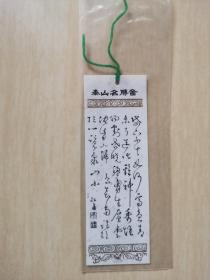 泰山名勝
岱宗夫如何齊魯青
未了造化鍾神秀陰陽
割昏曉盪胸生層雲
決眥入歸鳥會當凌絕
頂一覽眾山小